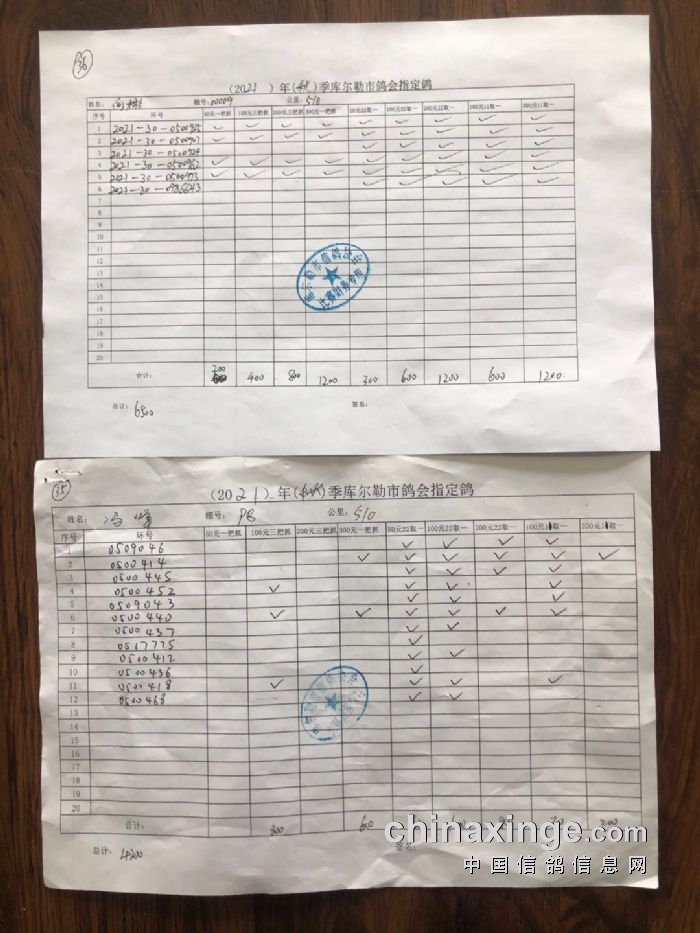 36
(2021)年(秋)季库尔勒市鸽会指定鸽
姓名: 棚号:00009 公里:510
序号 环号 50元一把抓 100元三把抓 200元三把抓 300元一把抓 50元22取一 100元22取一 200元22取一 100元11取一 200元11取一
1 2021-30-0500925
2 2021-30-0500907
3 2021-30-0500924
4 2021-30-0500962
5 2021-30-0500973
6 2021-30-0986643
7
8
9
10
11
12
13
14
15
16
17
18
19
20
合计: 200 400 800 1200 300 600 1200 600 1200
总计: 6500 签名:
35
(2021)年(秋)季库尔勒市鸽会指定鸽
姓名: 冯峰 棚号: PB 公里: 510
序号 环号 50元一把抓 100元三把抓 200元三把抓 300元一把抓 50元22取一 100元22取一 200元22取一 100元11取一 200元11取一
1 0509046
2 0500414
3 0500445
4 0500452
5 0509043
6 0500440
7 0500437
8 0517775
9 0500412
10 0500436
11 0500418
12 0500468
13
14
15
16
17
18
19
20
合计: 300 600
总计: 4200 签名:
chinaxinge.com
中国信鸽信息网